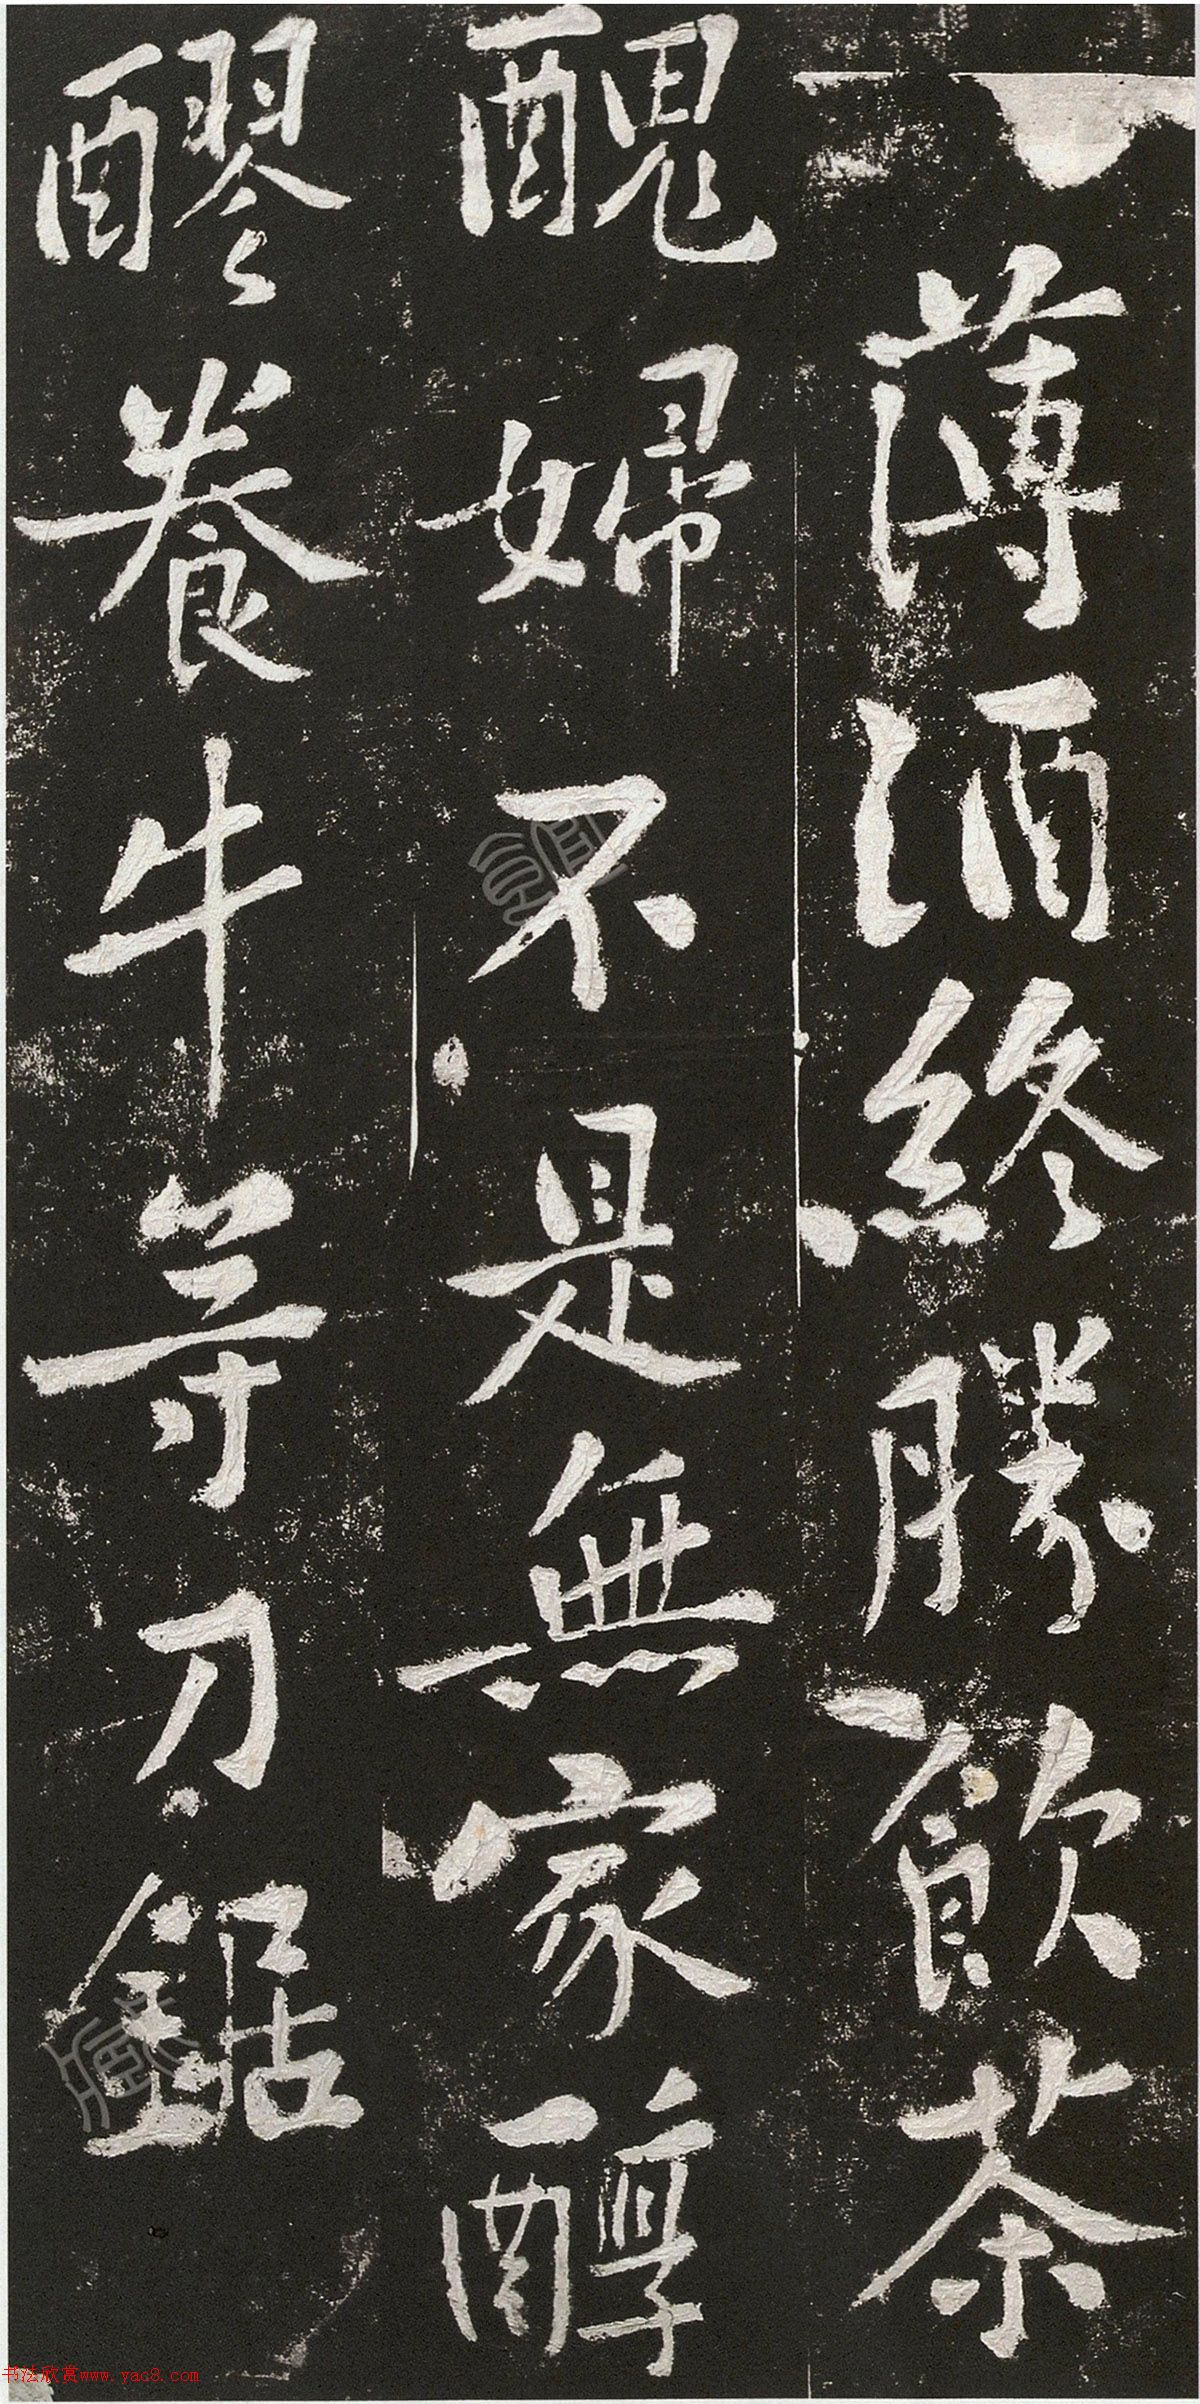 薄酒終勝飲茶
醜婦不是無家醇
醪養牛等刀鋸
书法欣赏www.yac8.com